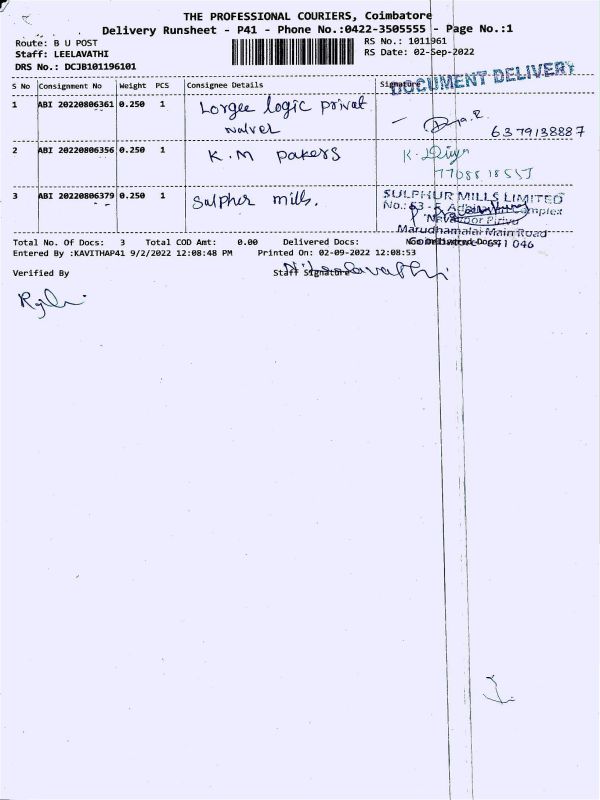 THE PROFESSIONAL COURIERS, Coimbatore
Delivery Runsheet - P41 - Phone No.:0422-3505555 - Page No.:1
Route: B U POST
RS No.: 1011961
Staff: LEELAVATHI
RS Date: 02-Sep-2022
DRS No.: DCJB101196101
DOCUMENT DELIVERY
S No Consignment No Weight PCS Consignee Details Signature
1 ABI 20220806361 0.250 1 Lorgee logic privat
6379138887
2 ABI 20220806356 0.250 1 K.M pakers K.Divya
3 ABI 20220806379 0.250 1 Sulpher mills.
SULPHUR MILLS LIMITED
No.: 53 - Complex
Pirivu
Marudhamalai Main Road
641 046
Total No. Of Docs: 3 Total COD Amt: 0.00 Delivered Docs:
Entered By :KAVITHAP41 9/2/2022 12:08:48 PM Printed On: 02-09-2022 12:08:53
Verified By Staff Signature